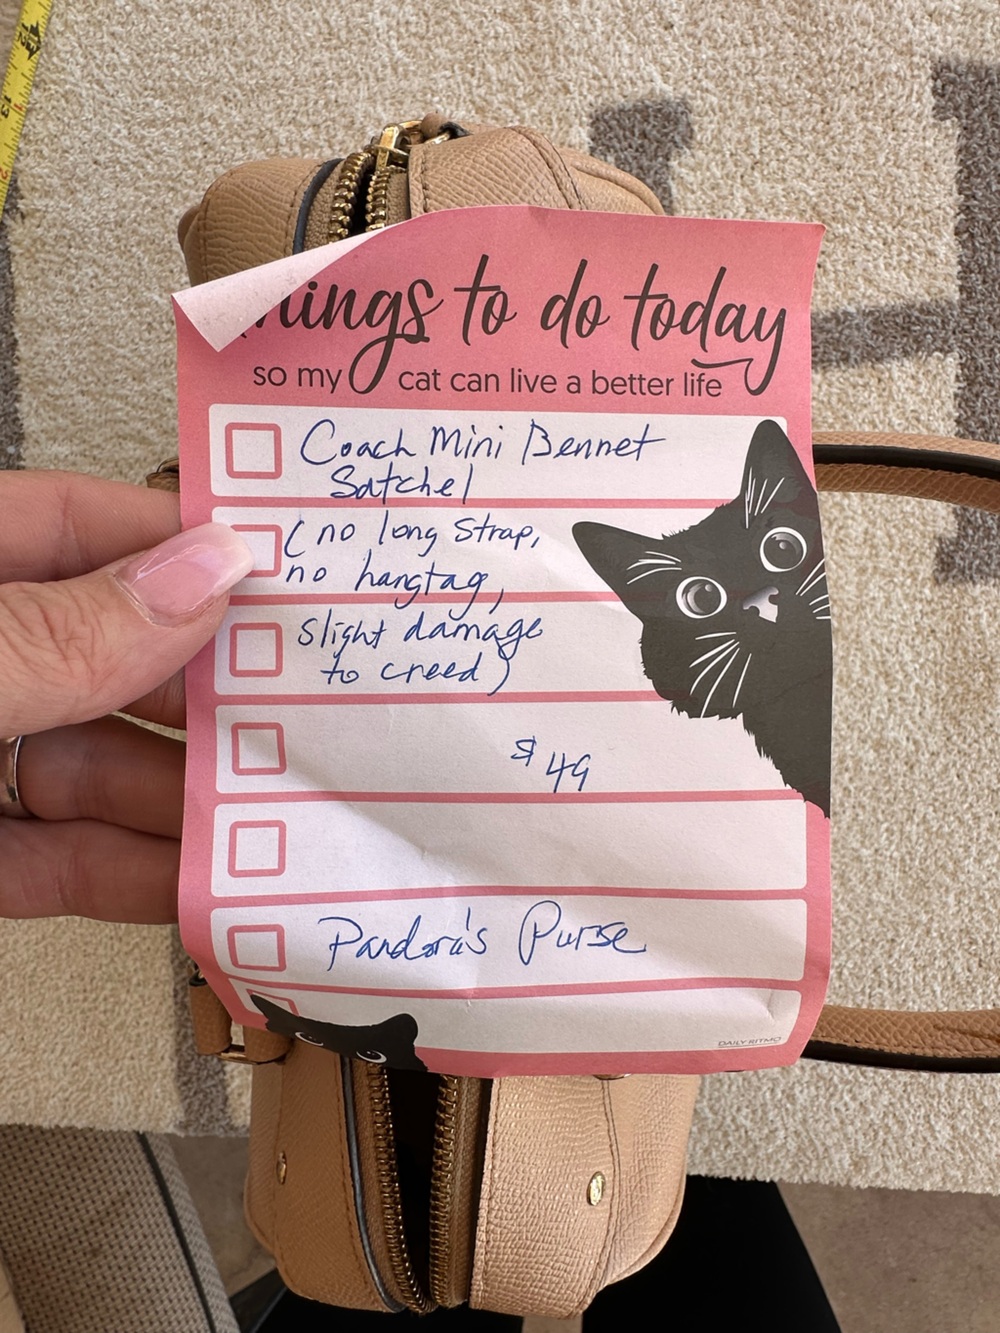 things to do today
so my cat can live a better life
Coach Mini Bennet
Satchel
(no long strap,
no hangtag,
slight damage
to creed)
$49
Pandora's Purse
DAILY RITMO